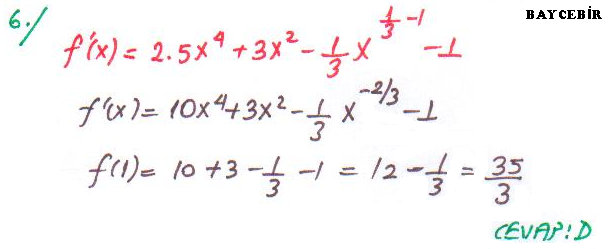 6./
BAYCEBİR
f'(x) = 2.5x⁴ + 3x² - 1/3 x^(1/3 - 1) - 1
f'(x) = 10x⁴ + 3x² - 1/3 x^(-2/3) - 1
f(1) = 10 + 3 - 1/3 - 1 = 12 - 1/3 = 35/3
CEVAP: D